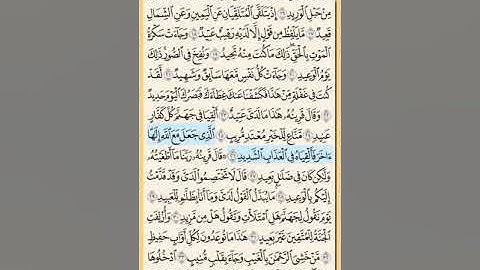 مِنْ حَبْلِ ٱلْوَرِيدِ ١٦ إِذْ يَتَلَقَّى ٱلْمُتَلَقِّيَانِ عَنِ ٱلْيَمِينِ وَعَنِ ٱلشِّمَالِ
قَعِيدٌ ١٧ مَّا يَلْفِظُ مِن قَوْلٍ إِلَّا لَدَيْهِ رَقِيبٌ عَتِيدٌ ١٨ وَجَآءَتْ سَكْرَةُ
ٱلْمَوْتِ بِٱلْحَقِّ ذَٰلِكَ مَا كُنتَ مِنْهُ تَحِيدُ ١٩ وَنُفِخَ فِى ٱلصُّورِ ذَٰلِكَ
يَوْمُ ٱلْوَعِيدِ ٢٠ وَجَآءَتْ كُلُّ نَفْسٍ مَّعَهَا سَآئِقٌ وَشَهِيدٌ ٢١ لَّقَدْ
كُنتَ فِى غَفْلَةٍ مِّنْ هَٰذَا فَكَشَفْنَا عَنكَ غِطَآءَكَ فَبَصَرُكَ ٱلْيَوْمَ حَدِيدٌ
٢٢ وَقَالَ قَرِينُهُۥ هَٰذَا مَا لَدَىَّ عَتِيدٌ ٢٣ أَلْقِيَا فِى جَهَنَّمَ كُلَّ كَفَّارٍ
عَنِيدٍ ٢٤ مَّنَّاعٍ لِّلْخَيْرِ مُعْتَدٍ مُّرِيبٍ ٢٥ ٱلَّذِى جَعَلَ مَعَ ٱللَّهِ إِلَٰهًا
ءَاخَرَ فَأَلْقِيَاهُ فِى ٱلْعَذَابِ ٱلشَّدِيدِ ٢٦ ۞ قَالَ قَرِينُهُۥ رَبَّنَا مَآ أَطْغَيْتُهُۥ
وَلَٰكِن كَانَ فِى ضَلَٰلٍۭ بَعِيدٍ ٢٧ قَالَ لَا تَخْتَصِمُوا۟ لَدَىَّ وَقَدْ قَدَّمْتُ
إِلَيْكُم بِٱلْوَعِيدِ ٢٨ مَا يُبَدَّلُ ٱلْقَوْلُ لَدَىَّ وَمَآ أَنَا۠ بِظَلَّٰمٍ لِّلْعَبِيدِ
٢٩ يَوْمَ نَقُولُ لِجَهَنَّمَ هَلِ ٱمْتَلَأْتِ وَتَقُولُ هَلْ مِن مَّزِيدٍ ٣٠ وَأُزْلِفَتِ
ٱلْجَنَّةُ لِلْمُتَّقِينَ غَيْرَ بَعِيدٍ ٣١ هَٰذَا مَا تُوعَدُونَ لِكُلِّ أَوَّابٍ حَفِيظٍ
٣٢ مَّنْ خَشِىَ ٱلرَّحْمَٰنَ بِٱلْغَيْبِ وَجَآءَ بِقَلْبٍ مُّنِيبٍ ٣٣ ٱدْخُلُوهَا